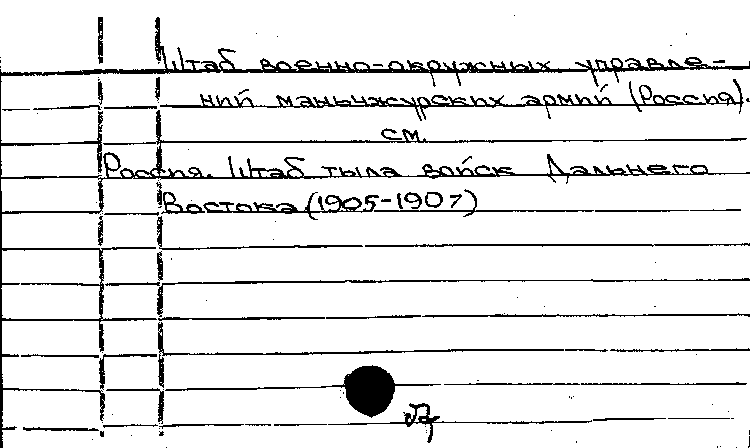 Штаб военно-окружных управле-
ний маньчжурских армий (Россия).
см.
Россия. Штаб тыла войск Дальнего
Востока (1905-1907)